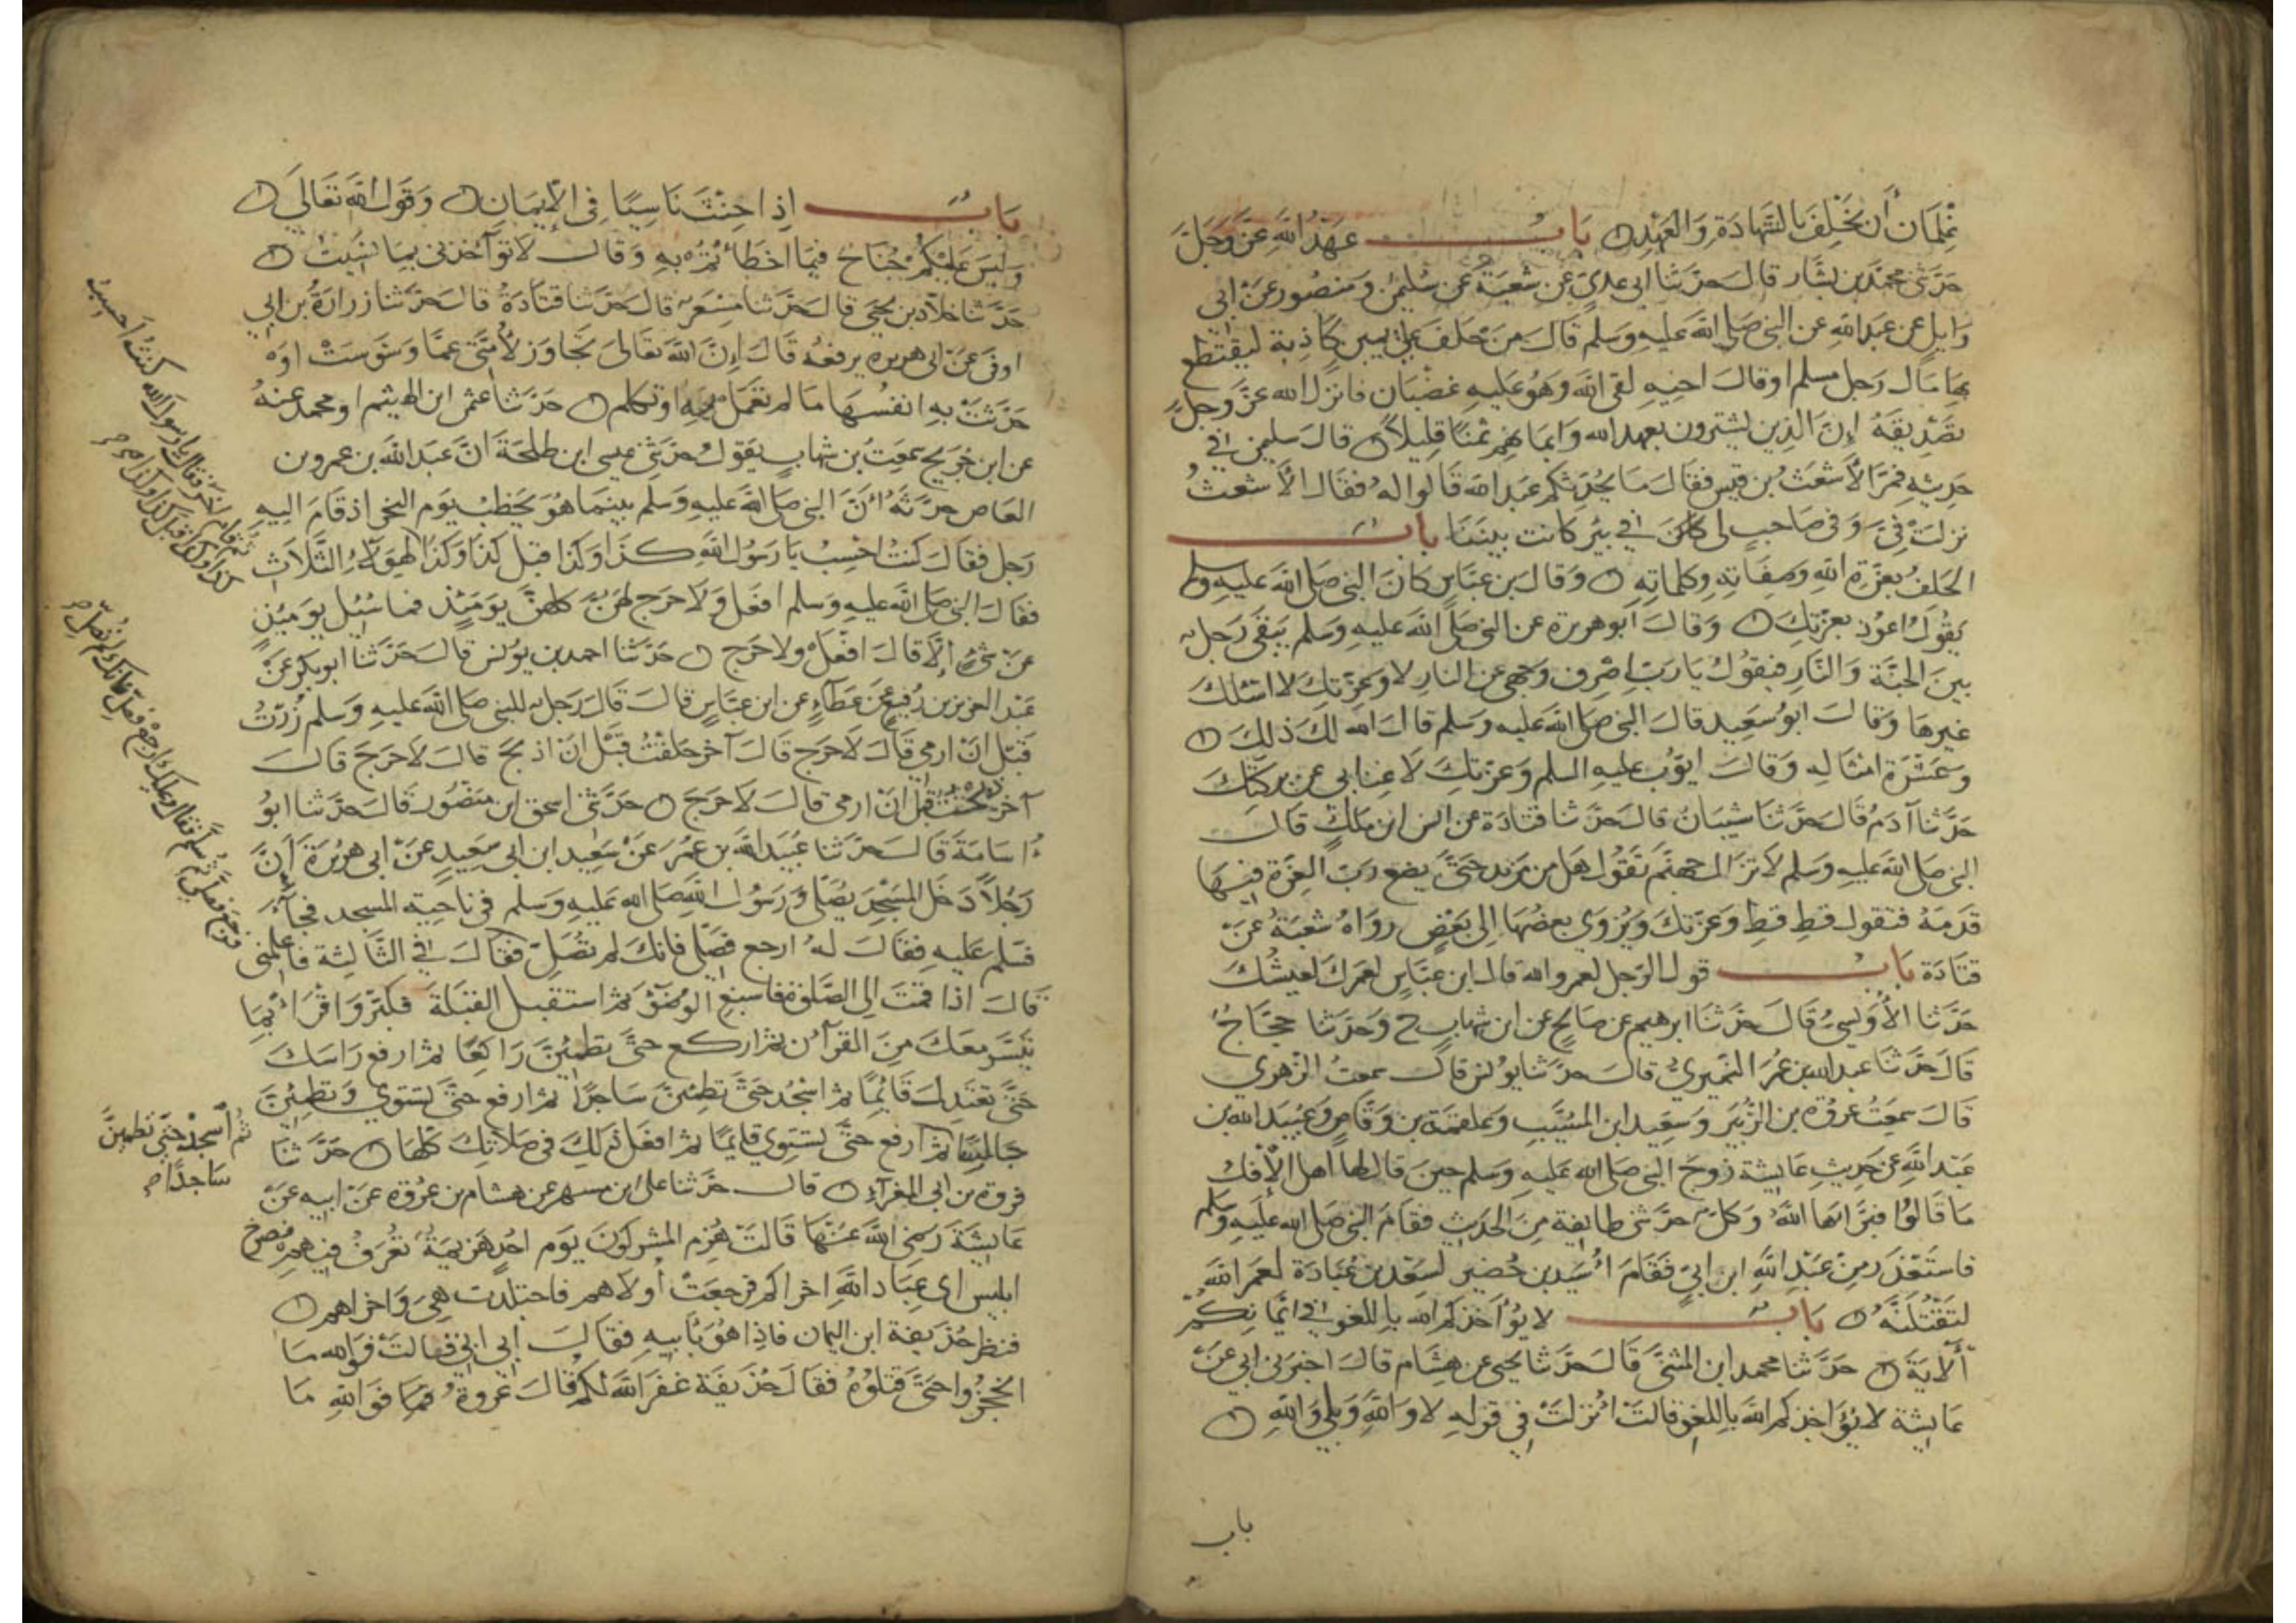 غلمان أن نحلف بالشهادة والعهد باب عهد الله عز وجل
حدثني محمد بن بشار قال حدثنا ابن ابي عدي عن شعبة عن سليمن ومنصور عن ابي
وايل عن عبد الله عن النبي صلى الله عليه وسلم قال من حلف على يمين كاذبة ليقتطع
بها مال رجل مسلم او قال اخيه لقي الله وهو عليه غضبان فانزل الله عز وجل
تصديقه إن الذين يشترون بعهد الله وايمانهم ثمنا قليلا قال سليمن في
حديثه فمر الأشعث بن قيس فقال ما يحدثكم عبد الله قالوا له فقال الأشعث
نزلت في وفي صاحب لى كان في بئر كانت بيننا باب
الحلف بعزة الله وصفاته وكلماته وقال بن عباس كان النبي صلى الله عليه وسلم
يقول اعوذ بعزتك وقال أبو هريرة عن النبي صلى الله عليه وسلم يبقى رجل
بين الجنة والنار فيقول يا رب اصرف وجهي عن النار لا وعزتك لا اسئلك
غيرها وقال ابو سعيد قال النبي صلى الله عليه وسلم قال الله لك ذلك
وعشرة امثاله وقال ايوب عليه السلم وعزتك لا غنا بي عن بركتك
حدثنا آدم قال حدثنا شيبان قال حدثنا قتادة عن انس ابن ملك قال
النبي صلى الله عليه وسلم لا تزال جهنم تقول هل من مزيد حتى يضع رب العزة فيها
قدمه فتقول قط قط وعزتك ويزوى بعضها إلى بعض رواه شعبة عن
قتادة باب قول الرجل لعمر والله قال ابن عباس لعمرك لعيشك
حدثنا الأويسي قال حدثنا ابرهيم عن صالح عن ابن شهاب ح وحدثنا حجاج
قال حدثنا عبد الله بن عمر النميري قال حدثنا يونس قال سمعت الزهري
قال سمعت عروة بن الزبير وسعيد ابن المسيب وعلقمة بن وقاص وعبيد الله بن
عبد الله عن حديث عايشة زوج النبي صلى الله عليه وسلم حين قال لها اهل الإفك
ما قالوا فبراها الله وكل حدثني طايفة من الحديث فقام النبي صلى الله عليه وسلم
فاستعذر من عبد الله ابن ابي فقام أسيد بن حضير لسعد بن عبادة لعمر الله
لتقتلنه باب لا يؤاخذكم الله باللغو في ايمانكم
الآية حدثنا محمد ابن المثنى قال حدثنا يحيى عن هشام قال اخبرني ابي عن
عايشة لا يؤاخذكم الله باللغو قالت انزلت في قوله لا والله وبلى والله
باب
باب إذا حنث ناسيا في الإيمان وقول الله تعالى
وليس عليكم جناح فيما اخطأتم به وقال لا تؤآخذني بما نسيت
حدثنا خلاد بن يحيى قال حدثنا مسعر قال حدثنا قتادة قال حدثنا زرارة بن ابي
اوفى عن ابى هريرة يرفعه قال إن الله تعالى تجاوز لأمتي عما وسوست او
حدثت به انفسها ما لم تعمل به او تكلم حدثنا عثمن ابن الهيثم او محمد عنه
عن ابن جريج سمعت بن شهاب يقول حدثني عيسى ابن طلحة ان عبد الله بن عمرو بن
العاص حدثه أن النبي صلى الله عليه وسلم بينما هو يخطب يوم النحر اذ قام اليه
رجل فقال كنت احسب يا رسول الله كذا وكذا قبل كذا وكذا لهؤلاء الثلاث
فقال النبي صلى الله عليه وسلم افعل ولا حرج لهن كلهن يومئذ فما سئيل يوميذ
عن شيء إلا قال افعل ولا حرج حدثنا احمد بن يونس قال حدثنا ابو بكر عن
عبد العزيز بن رفيع عن عطاء عن ابن عباس قال قال رجل للنبي صلى الله عليه وسلم زرت
قبل ان ارمي قال لا حرج قال آخر حلقت قبل ان اذبح قال لا حرج قال
آخر ذبحت قبل ان ارمي قال لا حرج حدثني اسحق ابن منصور قال حدثنا ابو
أسامة قال حدثنا عبيد الله بن عمر عن سعيد ابن ابي سعيد عن ابي هريرة أن
رجلا دخل المسجد يصلي ورسول الله صلى الله عليه وسلم في ناحية المسجد فجاء
فسلم عليه فقال له ارجع فصلي فانك لم تصل فقال في الثالثة فاعلمني
قال اذا قمت الى الصلوة فاسبغ الوضوء ثم استقبل القبلة فكبر واقرا بما
تيسر معك من القرآن ثم اركع حتى تطمئن راكعا ثم ارفع راسك
حتى تعتدل قائما ثم اسجد حتى تطمئن ساجدا ثم ارفع حتى تستوي وتطمئن
جالسا ثم ارفع حتى تستوي قايما ثم افعل ذلك في صلاتك كلها حدثنا
فروة بن ابي المغراء قال حدثنا على ابن مسهر عن هشام بن عروة عن ابيه عن
عايشة رضي الله عنها قالت هزم المشركون يوم احد هزيمة تعرف فيهم فصرخ
ابليس اى عباد الله اخراكم فرجعت أولاهم فاجتلدت هي واخراهم
فنظر حذيفة ابن اليمان فاذا هو بابيه فقال ابي ابي قالت فوالله ما
انحجزوا حتى قتلوه فقال حذيفة غفر الله لكم قال عروة فوالله ما
ثم قام آخر فقال يا رسول الله كنت احسب
كذا وكذا قبل كذا وكذا
فرجع فصلى ثم سلم فقال وعليك ارجع فصل فانك لم تصل
ثم أسجد حتى تطمئن
ساجدا